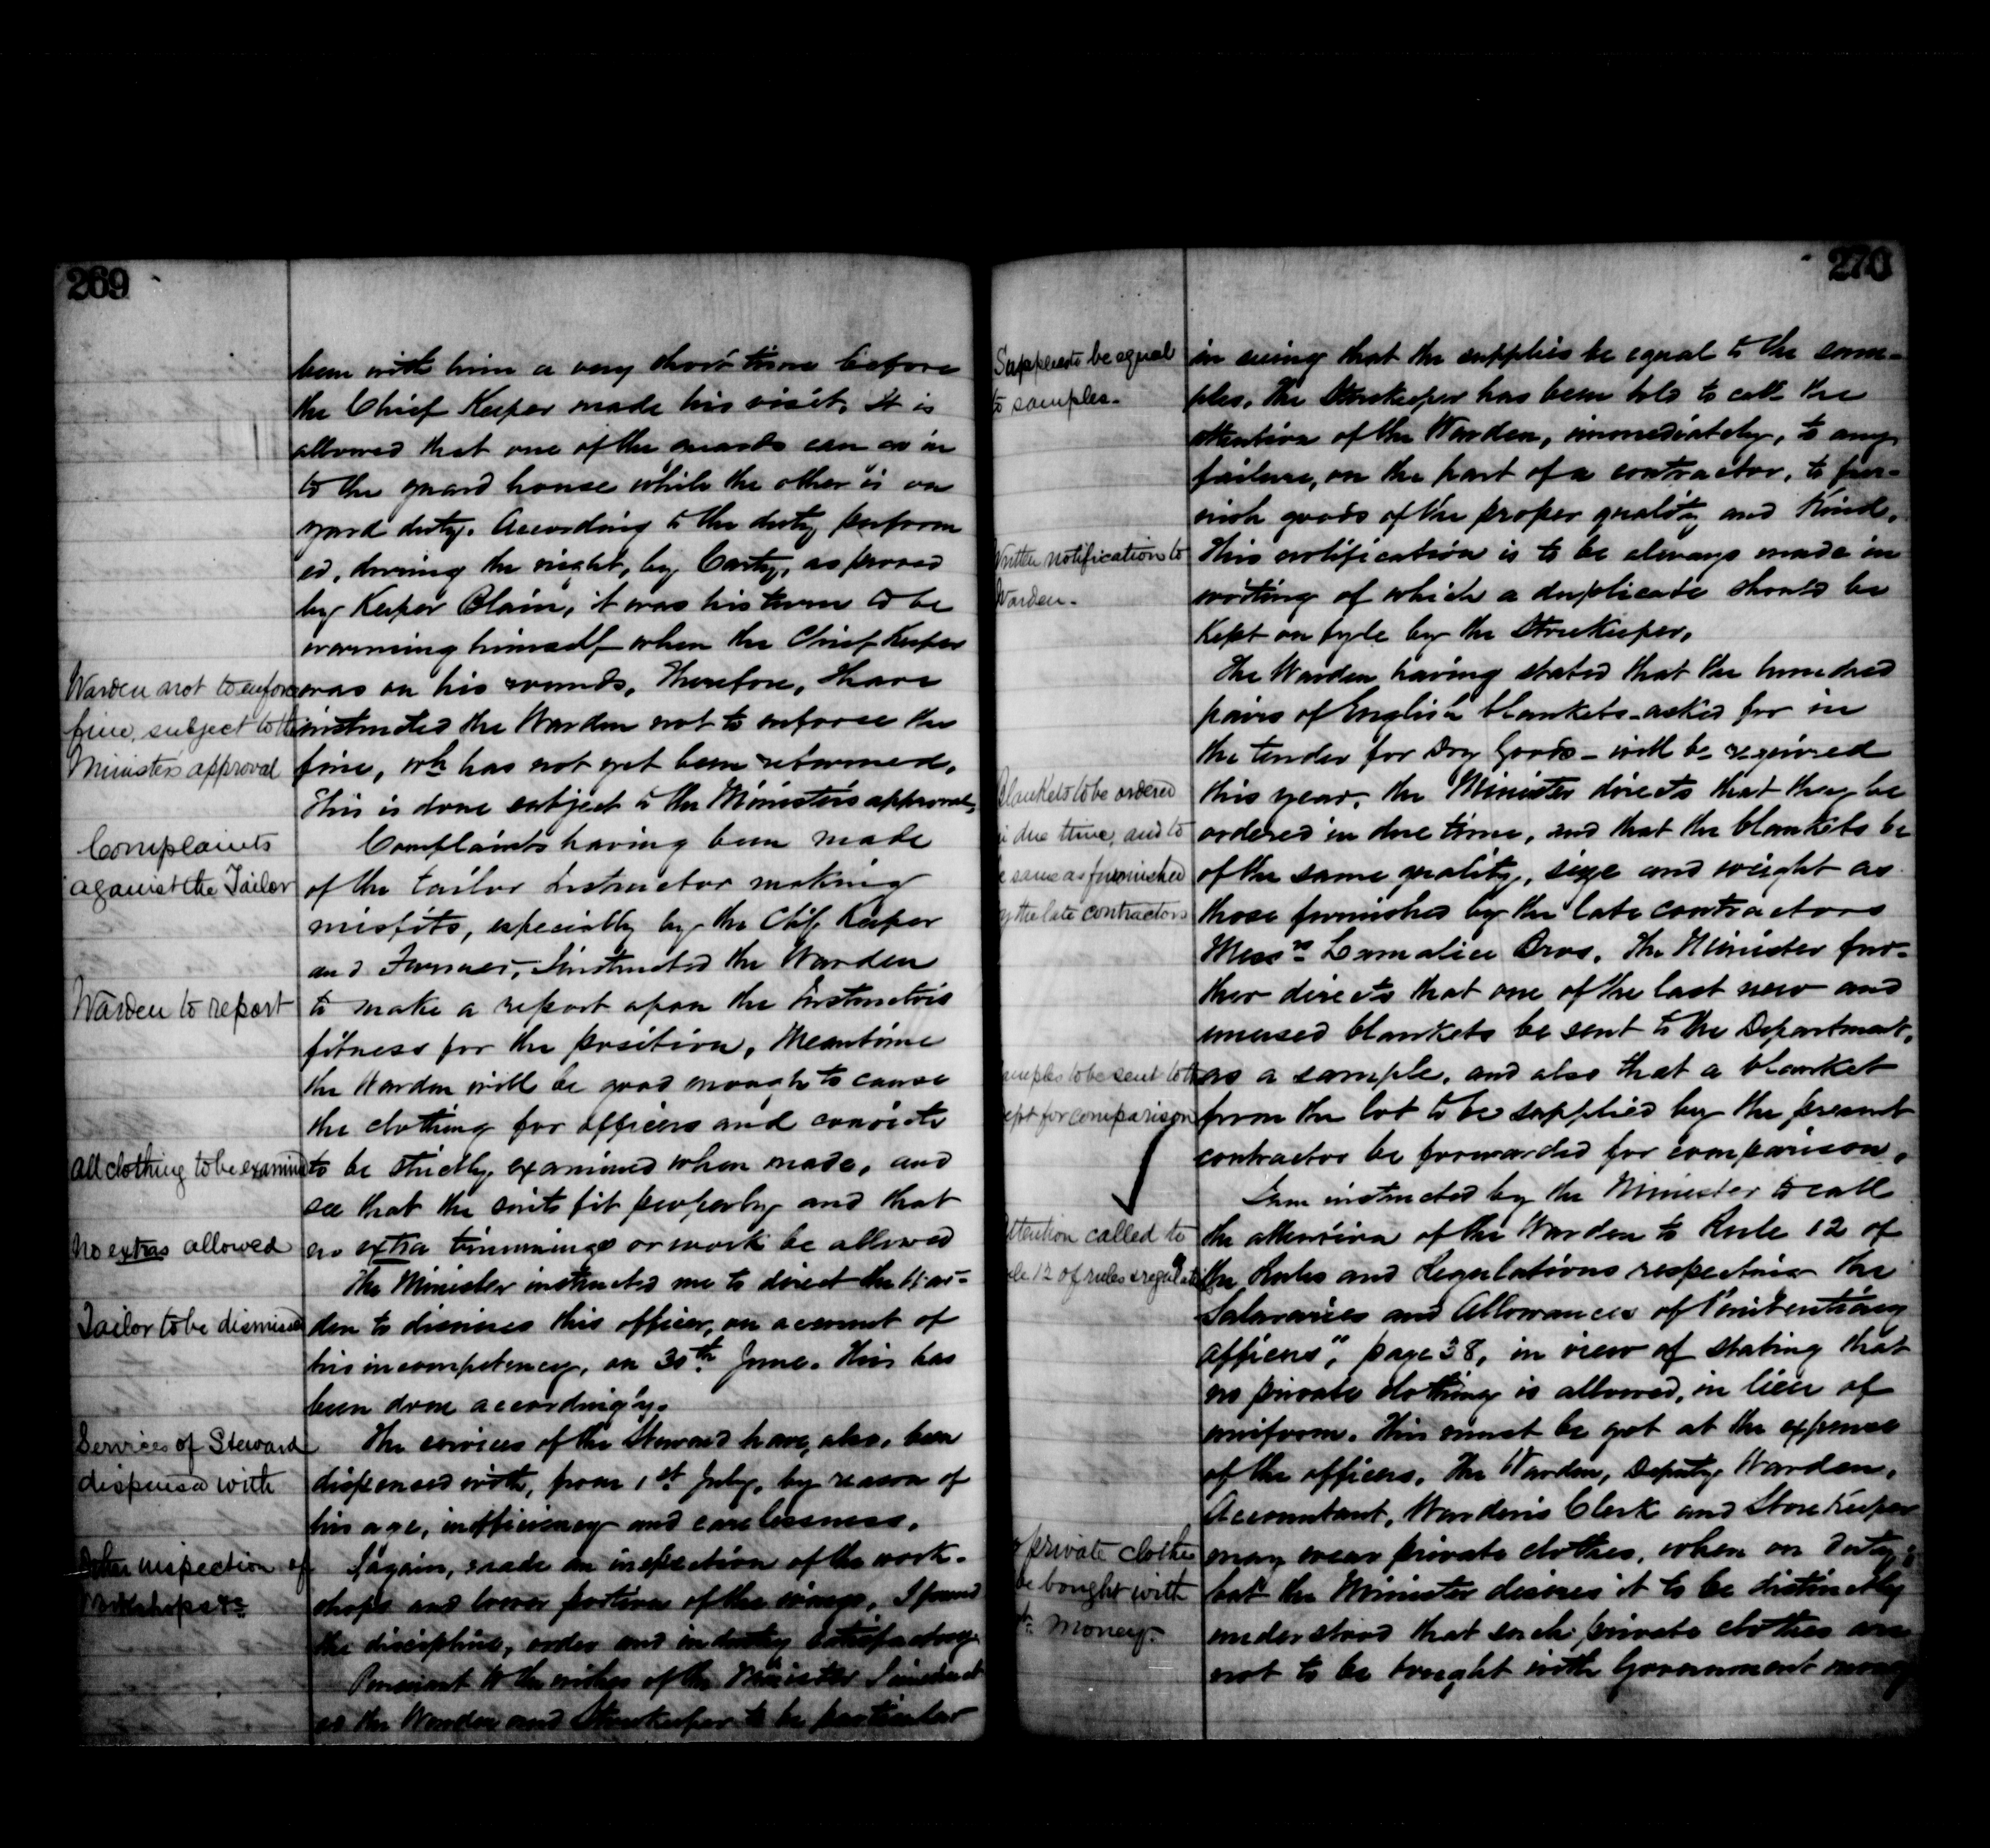 269
been with him a very short time before
the Chief Keeper made his visit. It is
allowed that one of the guards can go in
to the guard house while the other is on
yard duty. According to the duty perform
ed, during the night, by Carty, as proved
by Keeper Blain, it was his turn to be
warming himself when the Chief Keeper
Warden not to enforce
fine, subject to the
Minister's approval
was on his rounds. Therefore, I have
instructed the Warden not to enforce the
fine, wh has not yet been returned.
This is done subject to the Ministers approval.
Complaints
against the Tailor
Complaints having been made
of the tailor Instructor making
misfits, especially by the Chf. Keeper
and Farmer, I instructed the Warden
Warden to report
to make a report upon the Instructors
fitness for the position. Meantime
the Warden will be good enough to cause
the clothing for officers and convicts
All clothing to be examined
to be strictly examined when made, and
see that the suits fit properly and that
No extras allowed
no extra trimmings or work be allowed
The Minister instructed me to direct the War-
Tailor to be dismissed
den to dismiss this officer, on account of
his incompetency, on 30th June. This has
been done accordingly.
Services of Steward
dispensed with
The services of the Steward have, also, been
dispensed with, from 1st July, by reason of
his age, inefficiency and carelessness.
inspection of
Workshops &c
I again, made an inspection of the work-
shops and lower portion of the wings. I found
the discipline, order and industry satisfactory
Pursuant to the wishes of the Minister I instruct
ed the Warden and Storekeeper to be particular
270
Supplies to be equal
to samples.
in seeing that the supplies be equal to the sam-
ples. The Storekeeper has been told to call the
attention of the Warden, immediately, to any
failure, on the part of a contractor, to fur-
nish goods of the proper quality and kind.
Written notification to
Warden.
This notification is to be always made in
writing of which a duplicate should be
kept on fyle by the Storekeeper.
The Warden having stated that the hundred
pairs of English blankets asked for in
the tender for Dry Goods - will be required
Blankets to be ordered
in due time, and to
be same as furnished
by the late contractors
this year, the Minister directs that they be
ordered in due time, and that the blankets be
of the same quality, size and weight as
those furnished by the late contractors
Messrs Lamalice Bros. The Minister fur-
ther directs that one of the last new and
unused blankets be sent to the Department,
Samples to be sent to the
Dept for comparison
as a sample, and also that a blanket
from the lot to be supplied by the present
contractor be forwarded for comparison.
I am instructed by the Minister to call
Attention called to
rule 12 of rules & regulations
the attention of the Warden to Rule 12 of
the Rules and Regulations respecting the
Salararies and Allowances of Penitentiary
Officers", page 38, in view of stating that
no private clothing is allowed, in lieu of
uniform. This must be got at the expense
of the officers. The Warden, Deputy Warden,
Accountant, Warden's Clerk and Store Keeper
private clothes
be bought with
money.
may wear private clothes, when on duty;
but the Minister desires it to be distinctly
understood that such private clothes are
not to be bought with Government money